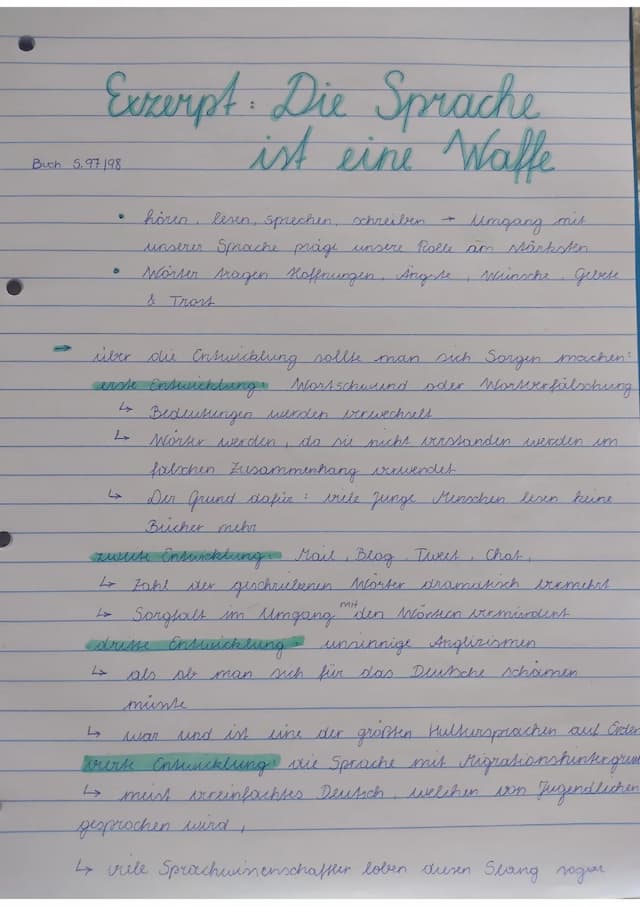 Exzerpt: Die Sprache
ist eine Waffe
Buch S. 97/98
• hören, lesen, sprechen, schreiben → Umgang mit
unserer Sprache präge unsere Rolle am stärksten
• Wörter tragen Hoffnungen, Ängste, Wünsche, Gebete
& Trost
→ über die Entwicklung sollte man sich Sorgen machen:
erste Entwicklung: Wortschwund oder Wortverfälschung
↳ Bedeutungen werden verwechselt
↳ Wörter werden, da sie nicht verstanden werden im
falschen Zusammenhang verwendet
↳ Der Grund dafür: viele junge Menschen lesen keine
Bücher mehr
zweite Entwicklung: Mail, Blog, Tweet, Chat,
↳ Zahl der geschriebenen Wörter dramatisch vermehrt
↳ Sorgfalt im Umgang mit den Wörtern vermindert
dritte Entwicklung: unsinnige Anglizismen
↳ als ob man sich für das Deutsche schämen
müsste
↳ war und ist eine der größten Kultursprachen auf Erden
vierte Entwicklung: die Sprache mit Migrationshintergrund
↳ meist vereinfachtes Deutsch, welches von Jugendlichen
gesprochen wird,
↳ viele Sprachwissenschaftler loben diesen Slang sogar